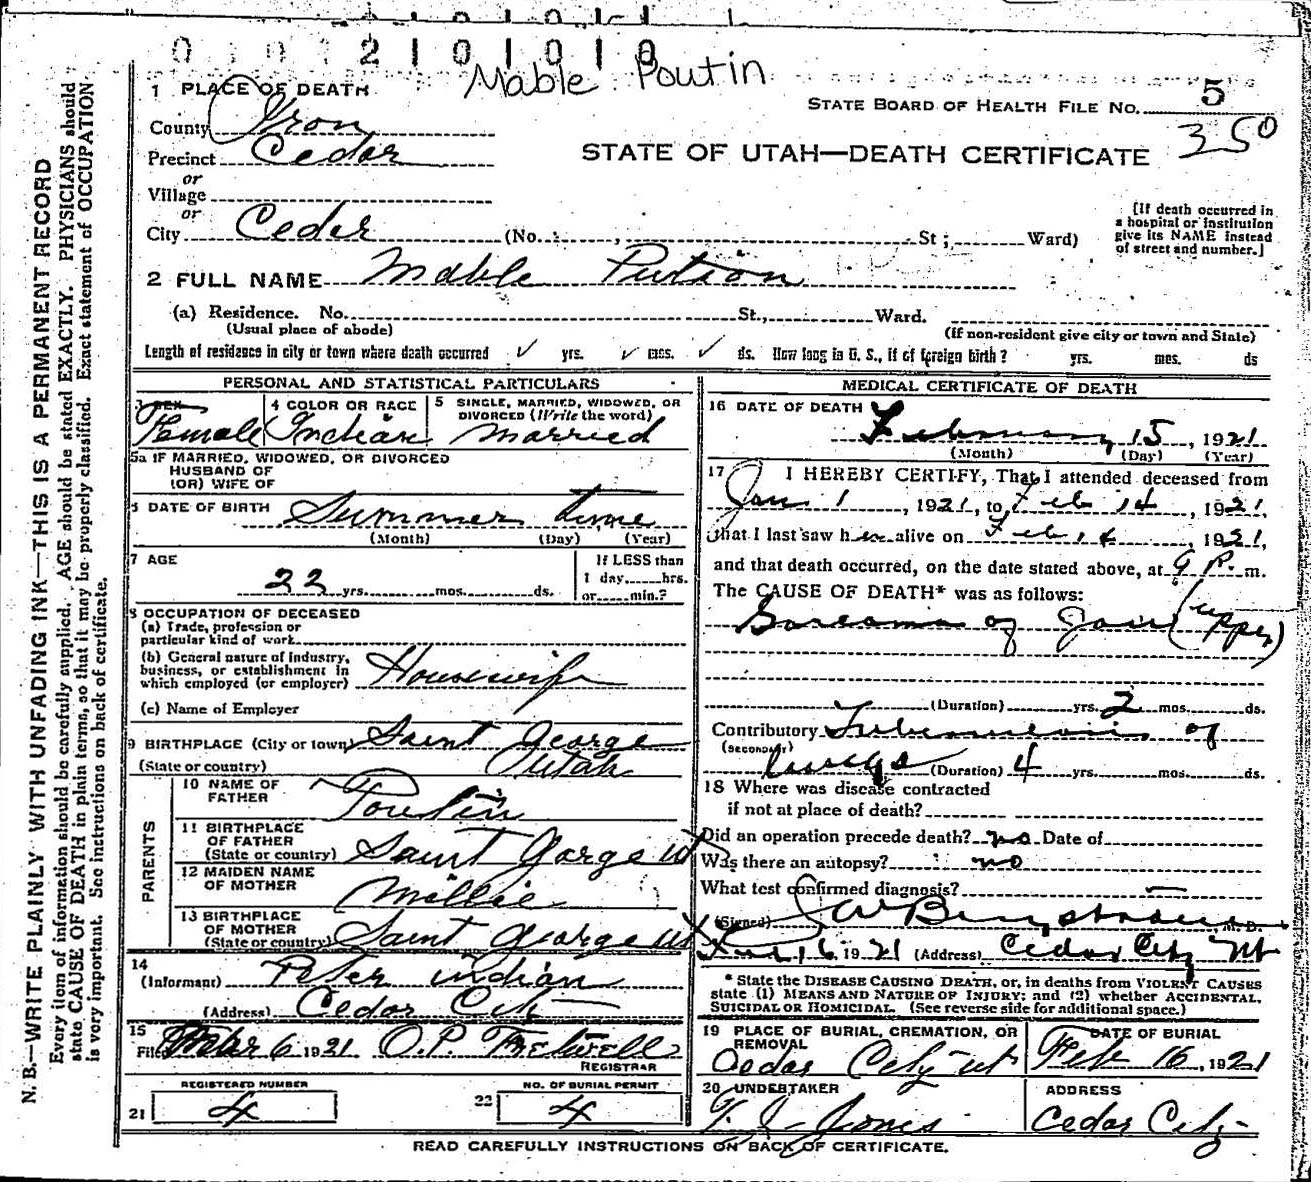 0 0 0 2 1 0 1 0 1 0
Mable Poutin
1 PLACE OF DEATH
STATE BOARD OF HEALTH FILE NO. 5
County Iron
350
Precinct Cedar
STATE OF UTAH—DEATH CERTIFICATE
or
Village
or
City Cedar (No. , St ; Ward)
[If death occurred in
a hospital or institution
give its NAME instead
of street and number.]
2 FULL NAME Mable
(a) Residence. No. St., Ward.
(Usual place of abode) (If non-resident give city or town and State)
Length of residence in city or town where death occurred ✓ yrs. ✓ mos. ✓ ds. How long in U. S., if of foreign birth? yrs. mos. ds
PERSONAL AND STATISTICAL PARTICULARS
3 SEX
Female
4 COLOR OR RACE
Indian
5 SINGLE, MARRIED, WIDOWED, OR
DIVORCED (Write the word)
Married
5a IF MARRIED, WIDOWED, OR DIVORCED
HUSBAND OF
(OR) WIFE OF
6 DATE OF BIRTH Summer time
(Month) (Day) (Year)
7 AGE
22 yrs. mos. ds.
If LESS than
1 day hrs.
or min.?
8 OCCUPATION OF DECEASED
(a) Trade, profession or
particular kind of work
(b) General nature of industry,
business, or establishment in
which employed (or employer) Housewife
(c) Name of Employer
9 BIRTHPLACE (City or town) Saint George
(State or country) Utah
PARENTS
10 NAME OF
FATHER Poutin
11 BIRTHPLACE
OF FATHER
(State or country) Saint Gorge Ut
12 MAIDEN NAME
OF MOTHER Millie
13 BIRTHPLACE
OF MOTHER
(State or country) Saint George Ut
14
(Informant) Peter indian
(Address) Cedar City
15
Filed Mar 6 1921 O.P. Fretwell
REGISTRAR
REGISTERED NUMBER
21 4
NO. OF BURIAL PERMIT
22 4
MEDICAL CERTIFICATE OF DEATH
16 DATE OF DEATH
February 15, 1921
(Month) (Day) (Year)
17 I HEREBY CERTIFY, That I attended deceased from
Jan 1, 1921, to Feb 14, 1921,
that I last saw her alive on Feb 14, 1921,
and that death occurred, on the date stated above, at 9 P. m.
The CAUSE OF DEATH* was as follows:
Sarcoma of Jaw (upper)
(Duration) yrs. 2 mos. ds.
Contributory Tuberculosis of
(SECONDARY)
lungs (Duration) 4 yrs. mos. ds.
18 Where was disease contracted
if not at place of death?
Did an operation precede death? no Date of
Was there an autopsy? no
What test confirmed diagnosis? —
(Signed) M. D.
16 1921 (Address) Cedar City Ut
* State the DISEASE CAUSING DEATH, or, in deaths from VIOLENT CAUSES
state (1) MEANS AND NATURE OF INJURY; and (2) whether ACCIDENTAL,
SUICIDAL OR HOMICIDAL. (See reverse side for additional space.)
19 PLACE OF BURIAL, CREMATION, OR
REMOVAL
Cedar City Ut
DATE OF BURIAL
Feb 16, 1921
20 UNDERTAKER
T. J. Jones
ADDRESS
Cedar City
READ CAREFULLY INSTRUCTIONS ON BACK OF CERTIFICATE.
N. B.—WRITE PLAINLY WITH UNFADING INK—THIS IS A PERMANENT RECORD
Every item of information should be carefully supplied. AGE should be stated EXACTLY. PHYSICIANS should
state CAUSE OF DEATH in plain terms, so that it may be properly classified. Exact statement of OCCUPATION
is very important. See instructions on back of certificate.